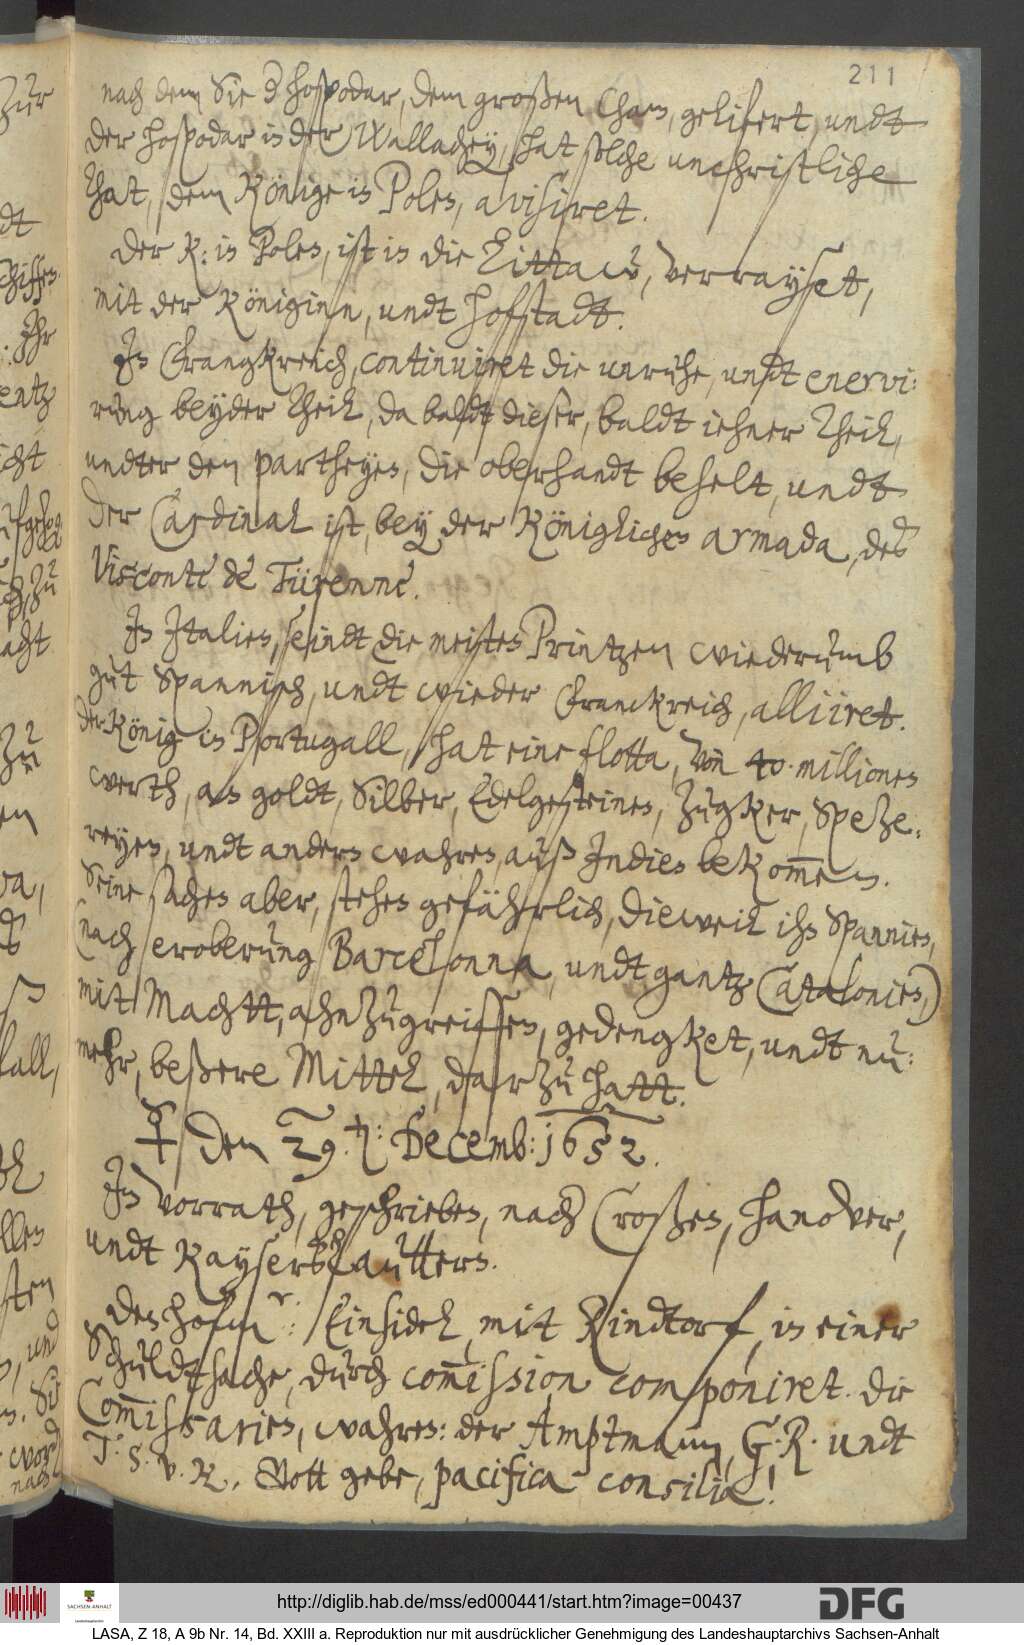 211
nach dem Sie d hospodar, dem großen Cham, gelifert, undt
der hospodar in der Wallachey, hat solche unchristliche
that, dem Könige in Polen, avisiret.
Der K: in Polen, ist in die Littaw, verrayset,
mit der Königinn, undt hofstadt.
In Frangkreich, continuiret die unruhe, undt enervi:
rung beyder theil, da baldt dieser, baldt iehner theil,
undter den partheyen, die oberhandt behelt, undt
der Cardinal ist, bey der Königlichen armada, des
Visconte de Türenne.
In Italien, seindt die meisten Printzen wiederumb
gut Spannisch, undt wieder Franckreich, alliiret.
der König in Portugall, hat eine flotta, von 40. millionen
werth, an goldt, Silber, Edelgesteinen, Zugker, Speze:
reyen, undt andern wahren, auß Indien bekommen.
Seine sachen aber, stehen gefährlich, dieweil ihn Spannien,
(nach eroberung Barcelonna, undt gantz Catalonien,)
mit Machtt, ahnzugreiffen, gedengket, undt nu:
mehr, beßere Mittel, darzu hatt.
☿ den 29. t: Decemb: 1652.
In Vorrath, geschrieben, nach Croßen, hanover,
undt Kayserßlauttern.
Den hofm r.: Einsidel, mit Rindtorf, in einer
Schuldtsache, durch commission componiret. Die
Commissarien, wahren: der Amptmann, G. R. undt
T. S. v. K. Gott gebe, pacifica consilia!
zur
dt
Schiffen
. Ihr
entz
icht
zu
acht
zu
en
va,
ß
fall,
ellen
sten
und
Sie
word
nach
SACHSEN-ANHALT
Landeshauptarchiv
http://diglib.hab.de/mss/ed000441/start.htm?image=00437
DFG
LASA, Z 18, A 9b Nr. 14, Bd. XXIII a. Reproduktion nur mit ausdrücklicher Genehmigung des Landeshauptarchivs Sachsen-Anhalt